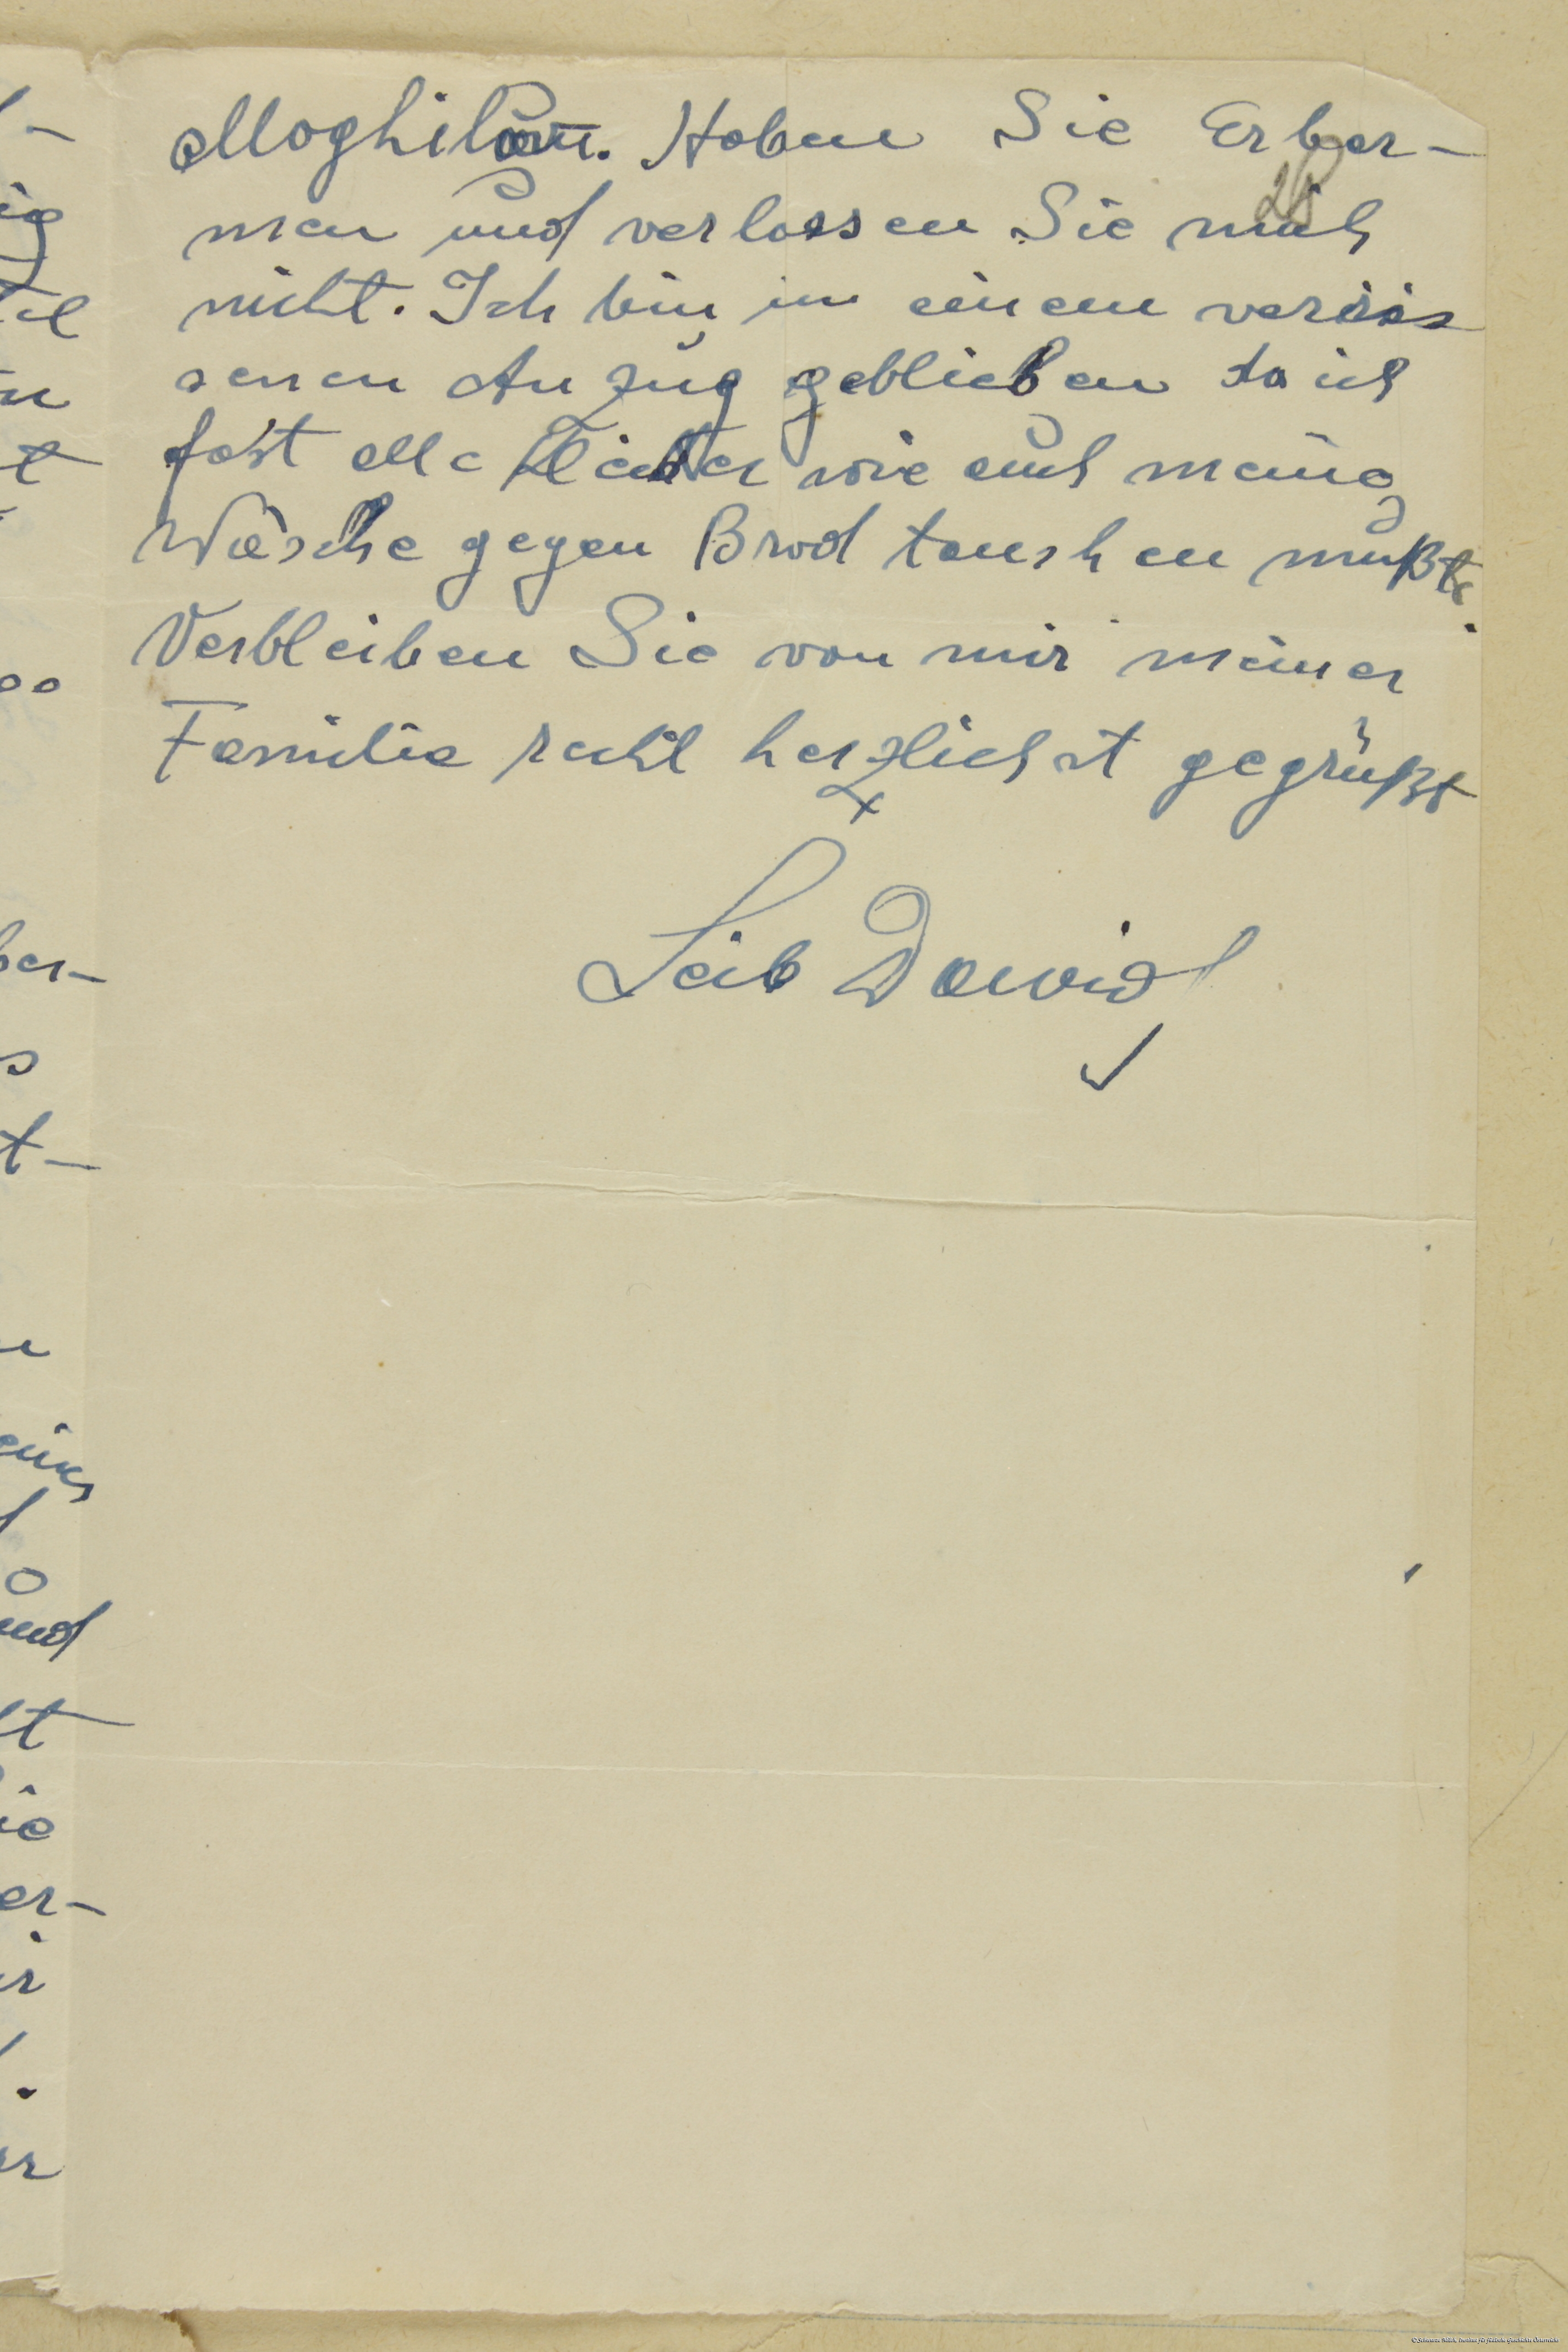 Moghilow. Haben Sie Erbar-
28
men und verlassen Sie mich
nicht. Ich bin im einem veriss
senen Anzug geblieben da ich
fast alle Kleider wie auch meine
Wäsche gegen Brod tauschen mußte.
Verbleiben Sie von mir meiner
Familie recht herzlichst gegrüßt
Leib Dawid